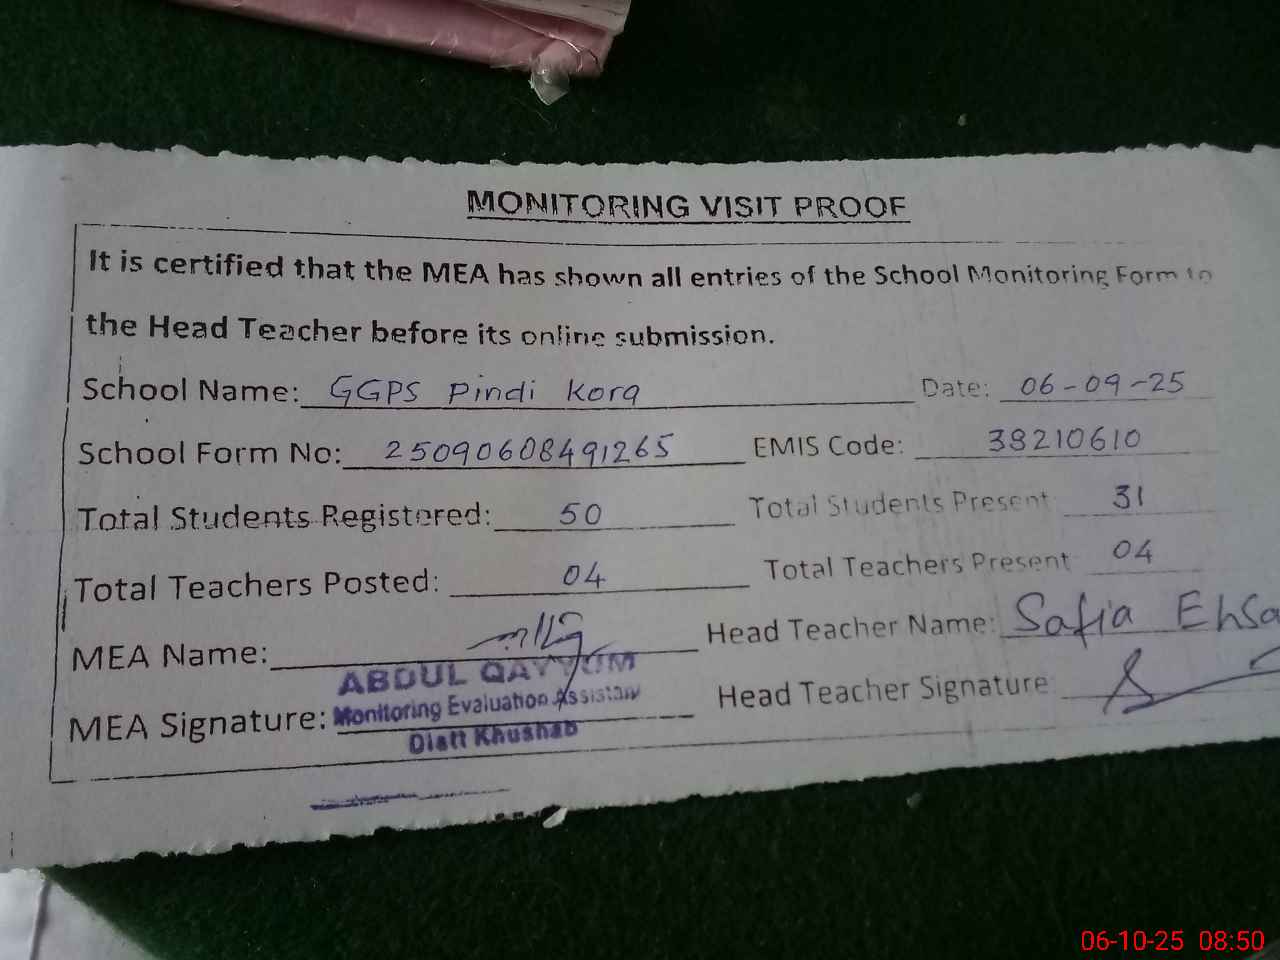 MONITORING VISIT PROOF
It is certified that the MEA has shown all entries of the School Monitoring Form to
the Head Teacher before its online submission.
School Name: GGPS Pindi Kora Date: 06-09-25
School Form No: 25090608491265 EMIS Code: 38210610
Total Students Registered: 50 Total Students Present 31
Total Teachers Posted: 04 Total Teachers Present 04
MEA Name: Head Teacher Name: Safia Ehsa
ABDUL QAYYUM
MEA Signature: Monitoring Evaluation Assistant Head Teacher Signature
Distt Khushab
06-10-25 08:50